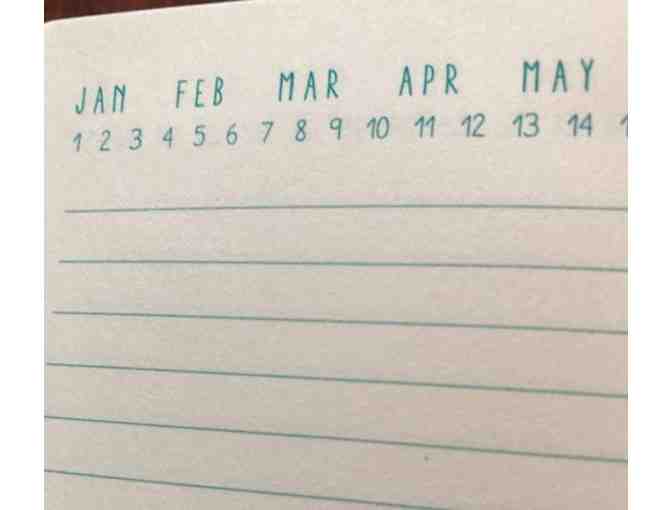 JAN FEB MAR APR MAY
1 2 3 4 5 6 7 8 9 10 11 12 13 14